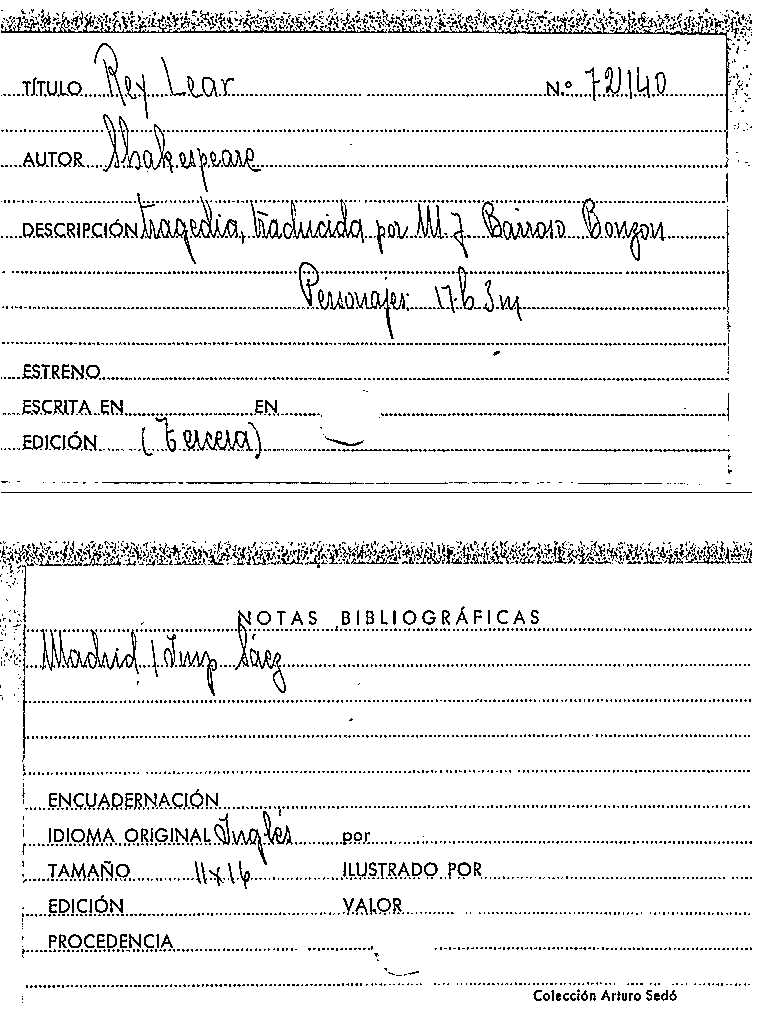 TÍTULO Rey Lear N.º 72140
AUTOR Shakespeare
DESCRIPCIÓN tragedia, traducida por M. J. Barroso Bonzon
Personajes 17 h 3 m
ESTRENO
ESCRITA EN EN
EDICIÓN (Tercera)
NOTAS BIBLIOGRÁFICAS
Madrid / Imp Sáez
ENCUADERNACIÓN
IDIOMA ORIGINAL Inglés por
TAMAÑO 11x16 ILUSTRADO POR
EDICIÓN VALOR
PROCEDENCIA
Colección Arturo Sedó